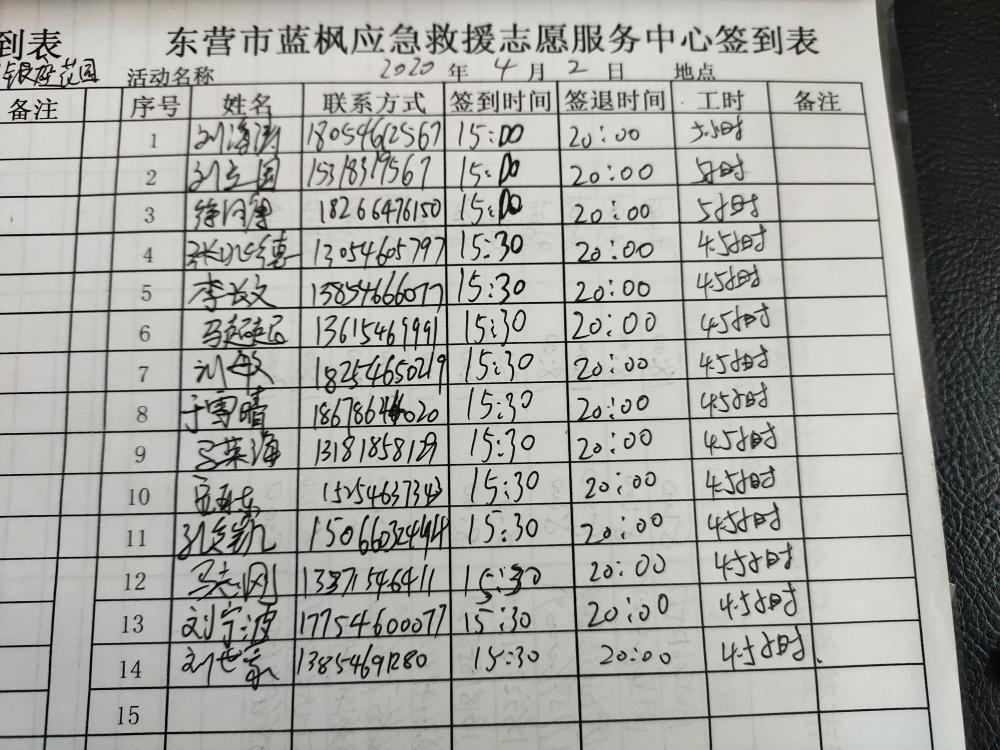 到表
东营市蓝枫应急救援志愿服务中心签到表
银座花园
活动名称 2020 年 4 月 2 日 地点
备注
序号 姓名 联系方式 签到时间 签退时间 工时 备注
1 刘海涛 18054612567 15:00 20:00 5小时
2 刘立国 15318319567 15:00 20:00 5小时
3 18266476150 15:00 20:00 5小时
4 13054605797 15:30 20:00 4.5小时
5 李长文 15854666077 15:30 20:00 4.5小时
6 马超 13615469991 15:30 20:00 4.5小时
7 刘敏 18254650219 15:30 20:00 4.5小时
8 于雪晴 15:30 20:00 4.5小时
9 13181858129 15:30 20:00 4.5小时
10 15254637343 15:30 20:00 4.5小时
11 15:30 20:00 4.5小时
12 马志刚 15:30 20:00 4.5小时
13 刘宁波 17754600077 15:30 20:00 4.5小时
14 刘世家 13854691280 15:30 20:00 4.5小时
15